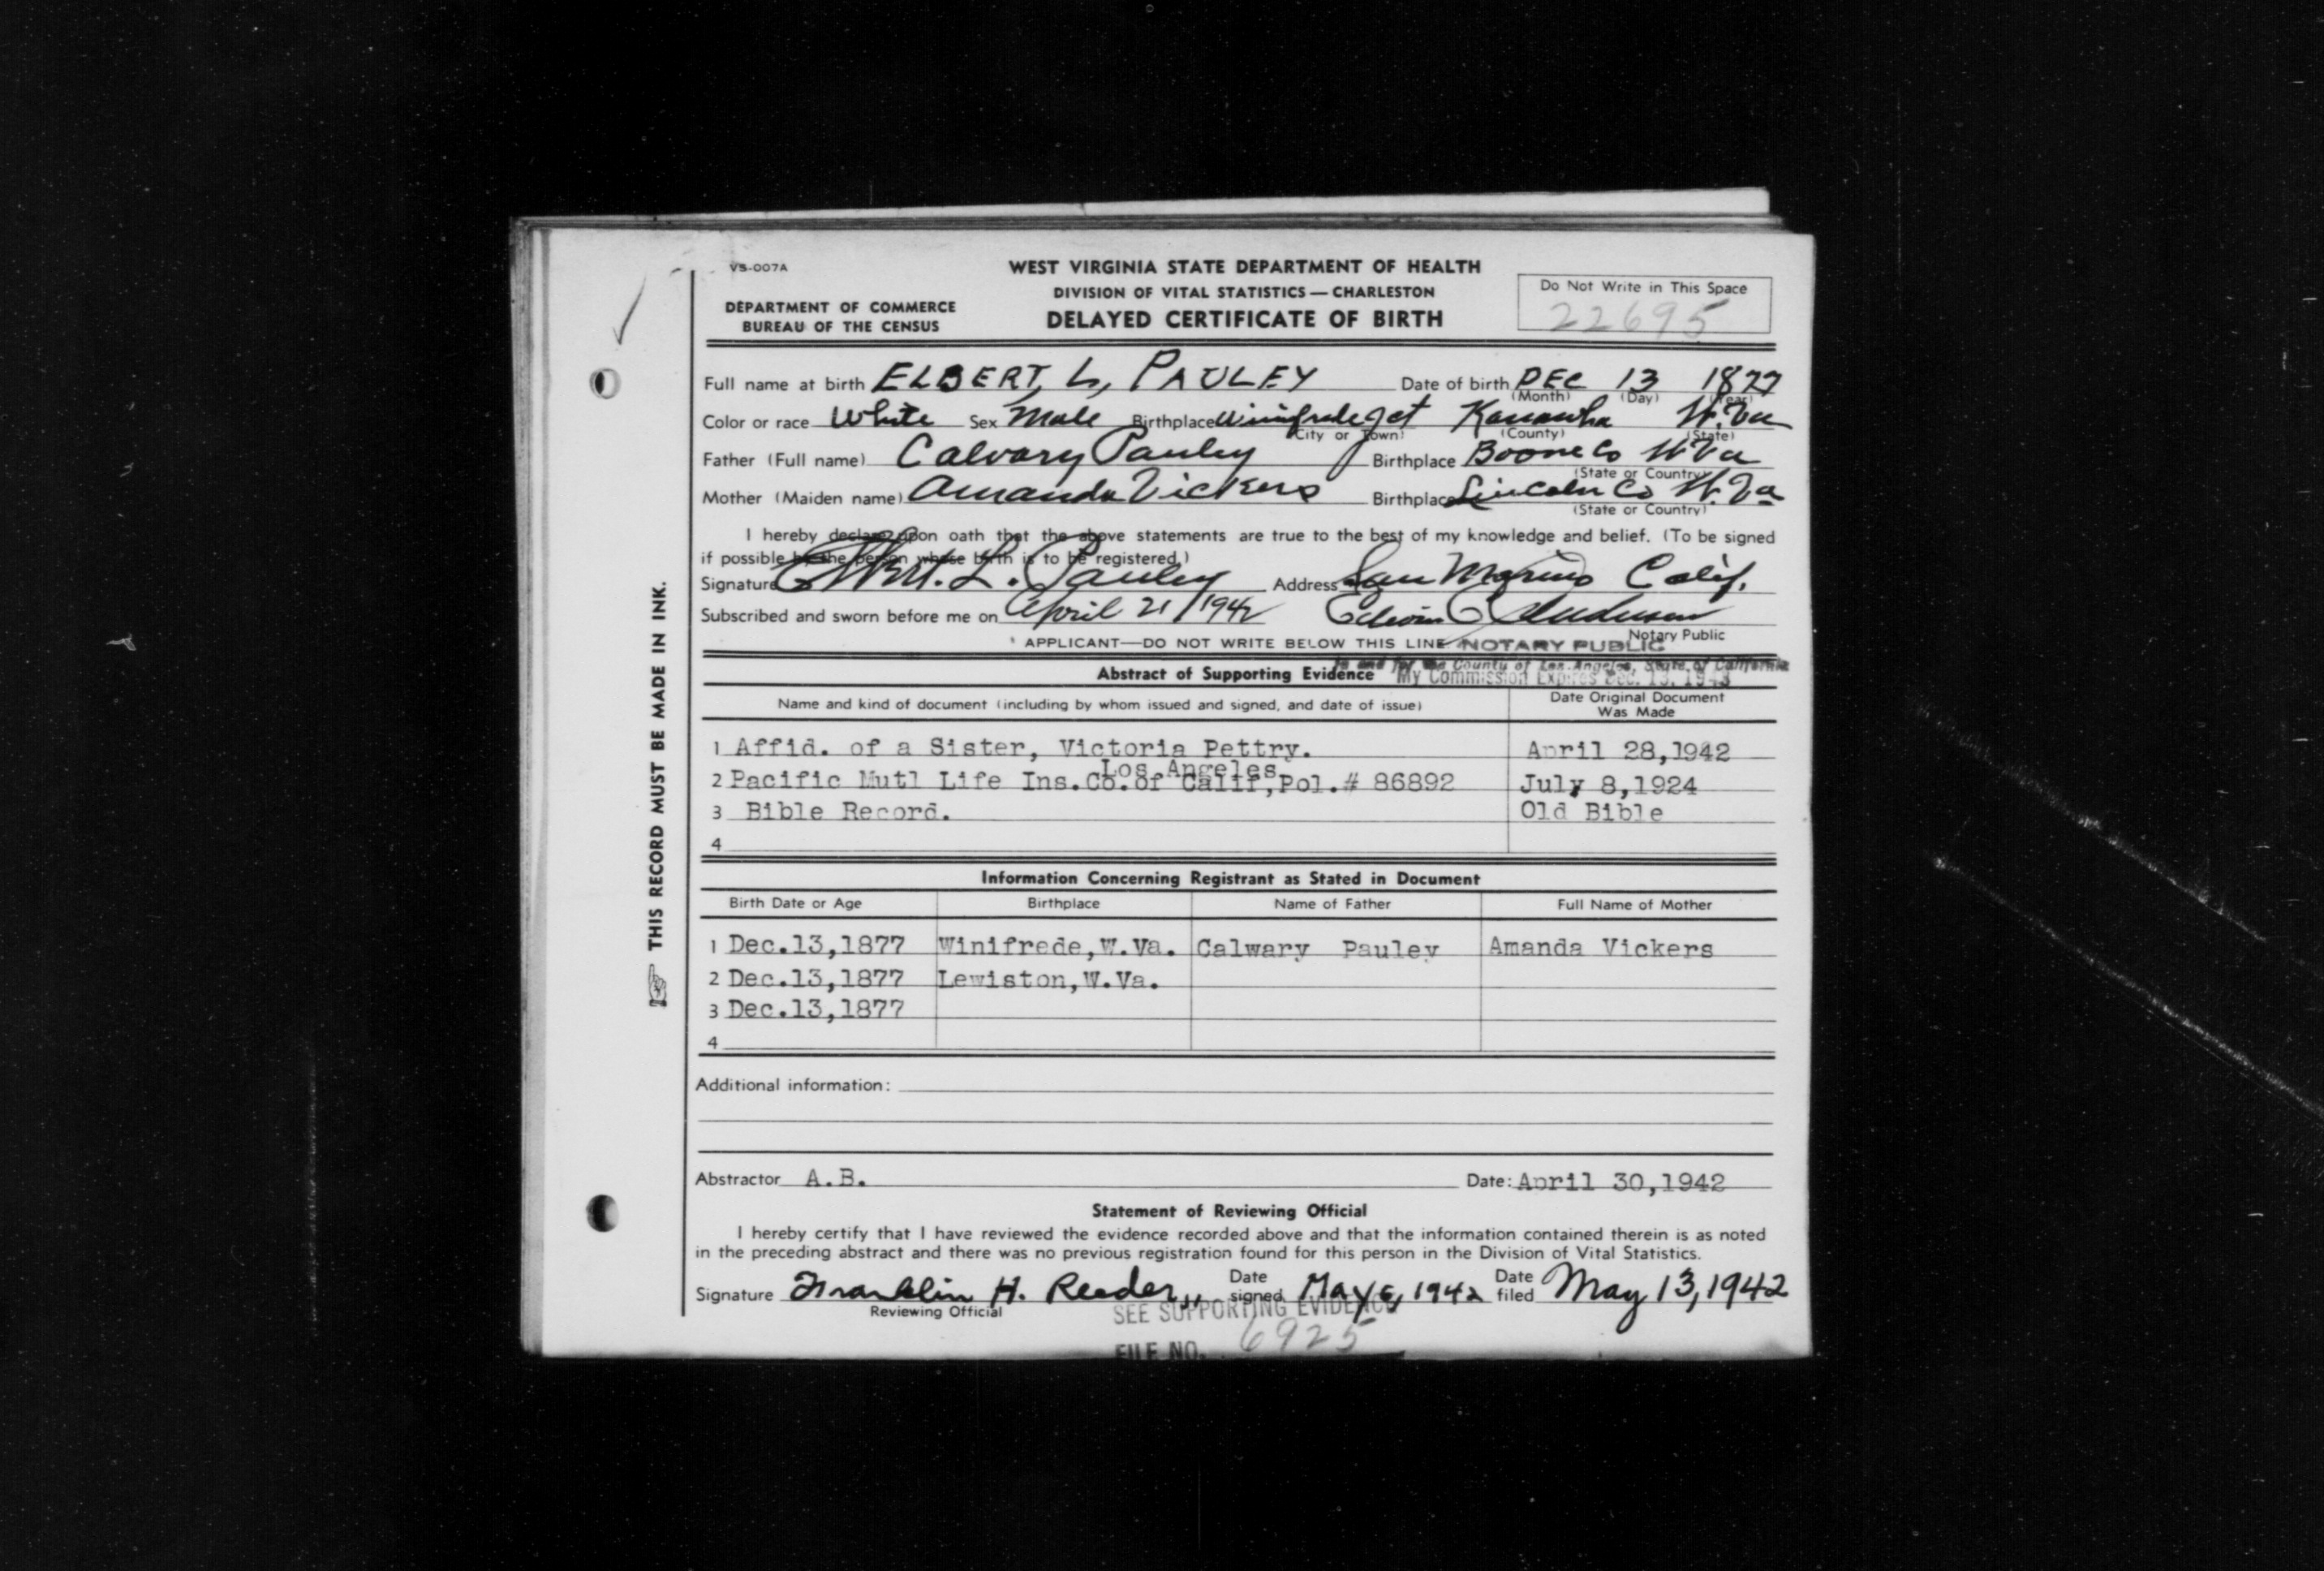 VS-007A
WEST VIRGINIA STATE DEPARTMENT OF HEALTH
DIVISION OF VITAL STATISTICS — CHARLESTON
DELAYED CERTIFICATE OF BIRTH
DEPARTMENT OF COMMERCE
BUREAU OF THE CENSUS
Do Not Write in This Space
22695
THIS RECORD MUST BE MADE IN INK.
Full name at birth ELBERT, L, PAULEY Date of birth DEC 13 1877
(Month) (Day) (Year)
Color or race White Sex Male Birthplace Winifrede Jct Kanawha W.Va
(City or Town) (County) (State)
Father (Full name) Calvary Pauley Birthplace Boone Co W Va
(State or Country)
Mother (Maiden name) Amanda Vickers Birthplace Lincoln Co W. Va
(State or Country)
I hereby declare upon oath that the above statements are true to the best of my knowledge and belief. (To be signed
if possible by the person whose birth is to be registered.)
Signature Elbert. L. Pauley Address San Marino Calif.
Subscribed and sworn before me on April 21/1942 Edwin C Anderson
Notary Public
APPLICANT—DO NOT WRITE BELOW THIS LINE NOTARY PUBLIC
In and for the County of Los Angeles, State of California
Abstract of Supporting Evidence My Commission Expires Dec. 13, 1943
Name and kind of document (including by whom issued and signed, and date of issue) Date Original Document
Was Made
1 Affid. of a Sister, Victoria Pettry. April 28,1942
Los Angeles
2 Pacific Mutl Life Ins.Co.of Calif,Pol.# 86892 July 8,1924
3 Bible Record. Old Bible
4
Information Concerning Registrant as Stated in Document
Birth Date or Age Birthplace Name of Father Full Name of Mother
1 Dec.13,1877 Winifrede,W.Va. Calwary Pauley Amanda Vickers
2 Dec.13,1877 Lewiston,W.Va.
3 Dec.13,1877
4
Additional information:
Abstractor A.B. Date: April 30,1942
Statement of Reviewing Official
I hereby certify that I have reviewed the evidence recorded above and that the information contained therein is as noted
in the preceding abstract and there was no previous registration found for this person in the Division of Vital Statistics.
Signature Franklin H. Reeder,, Date signed May 6, 1942 Date filed May 13, 1942
Reviewing Official
SEE SUPPORTING EVIDENCE
FILE NO. 6925